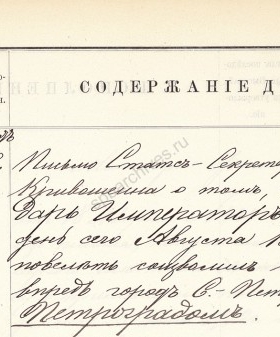 СОДЕРЖАНІЕ Д
Письмо Статсъ-Секрет
Кривошеина о томъ,
даръ Императоръ
день сего Августа
повелѣть соизволилъ
впредь городъ С.-Пет
Петроградомъ.
spbarchives.ru